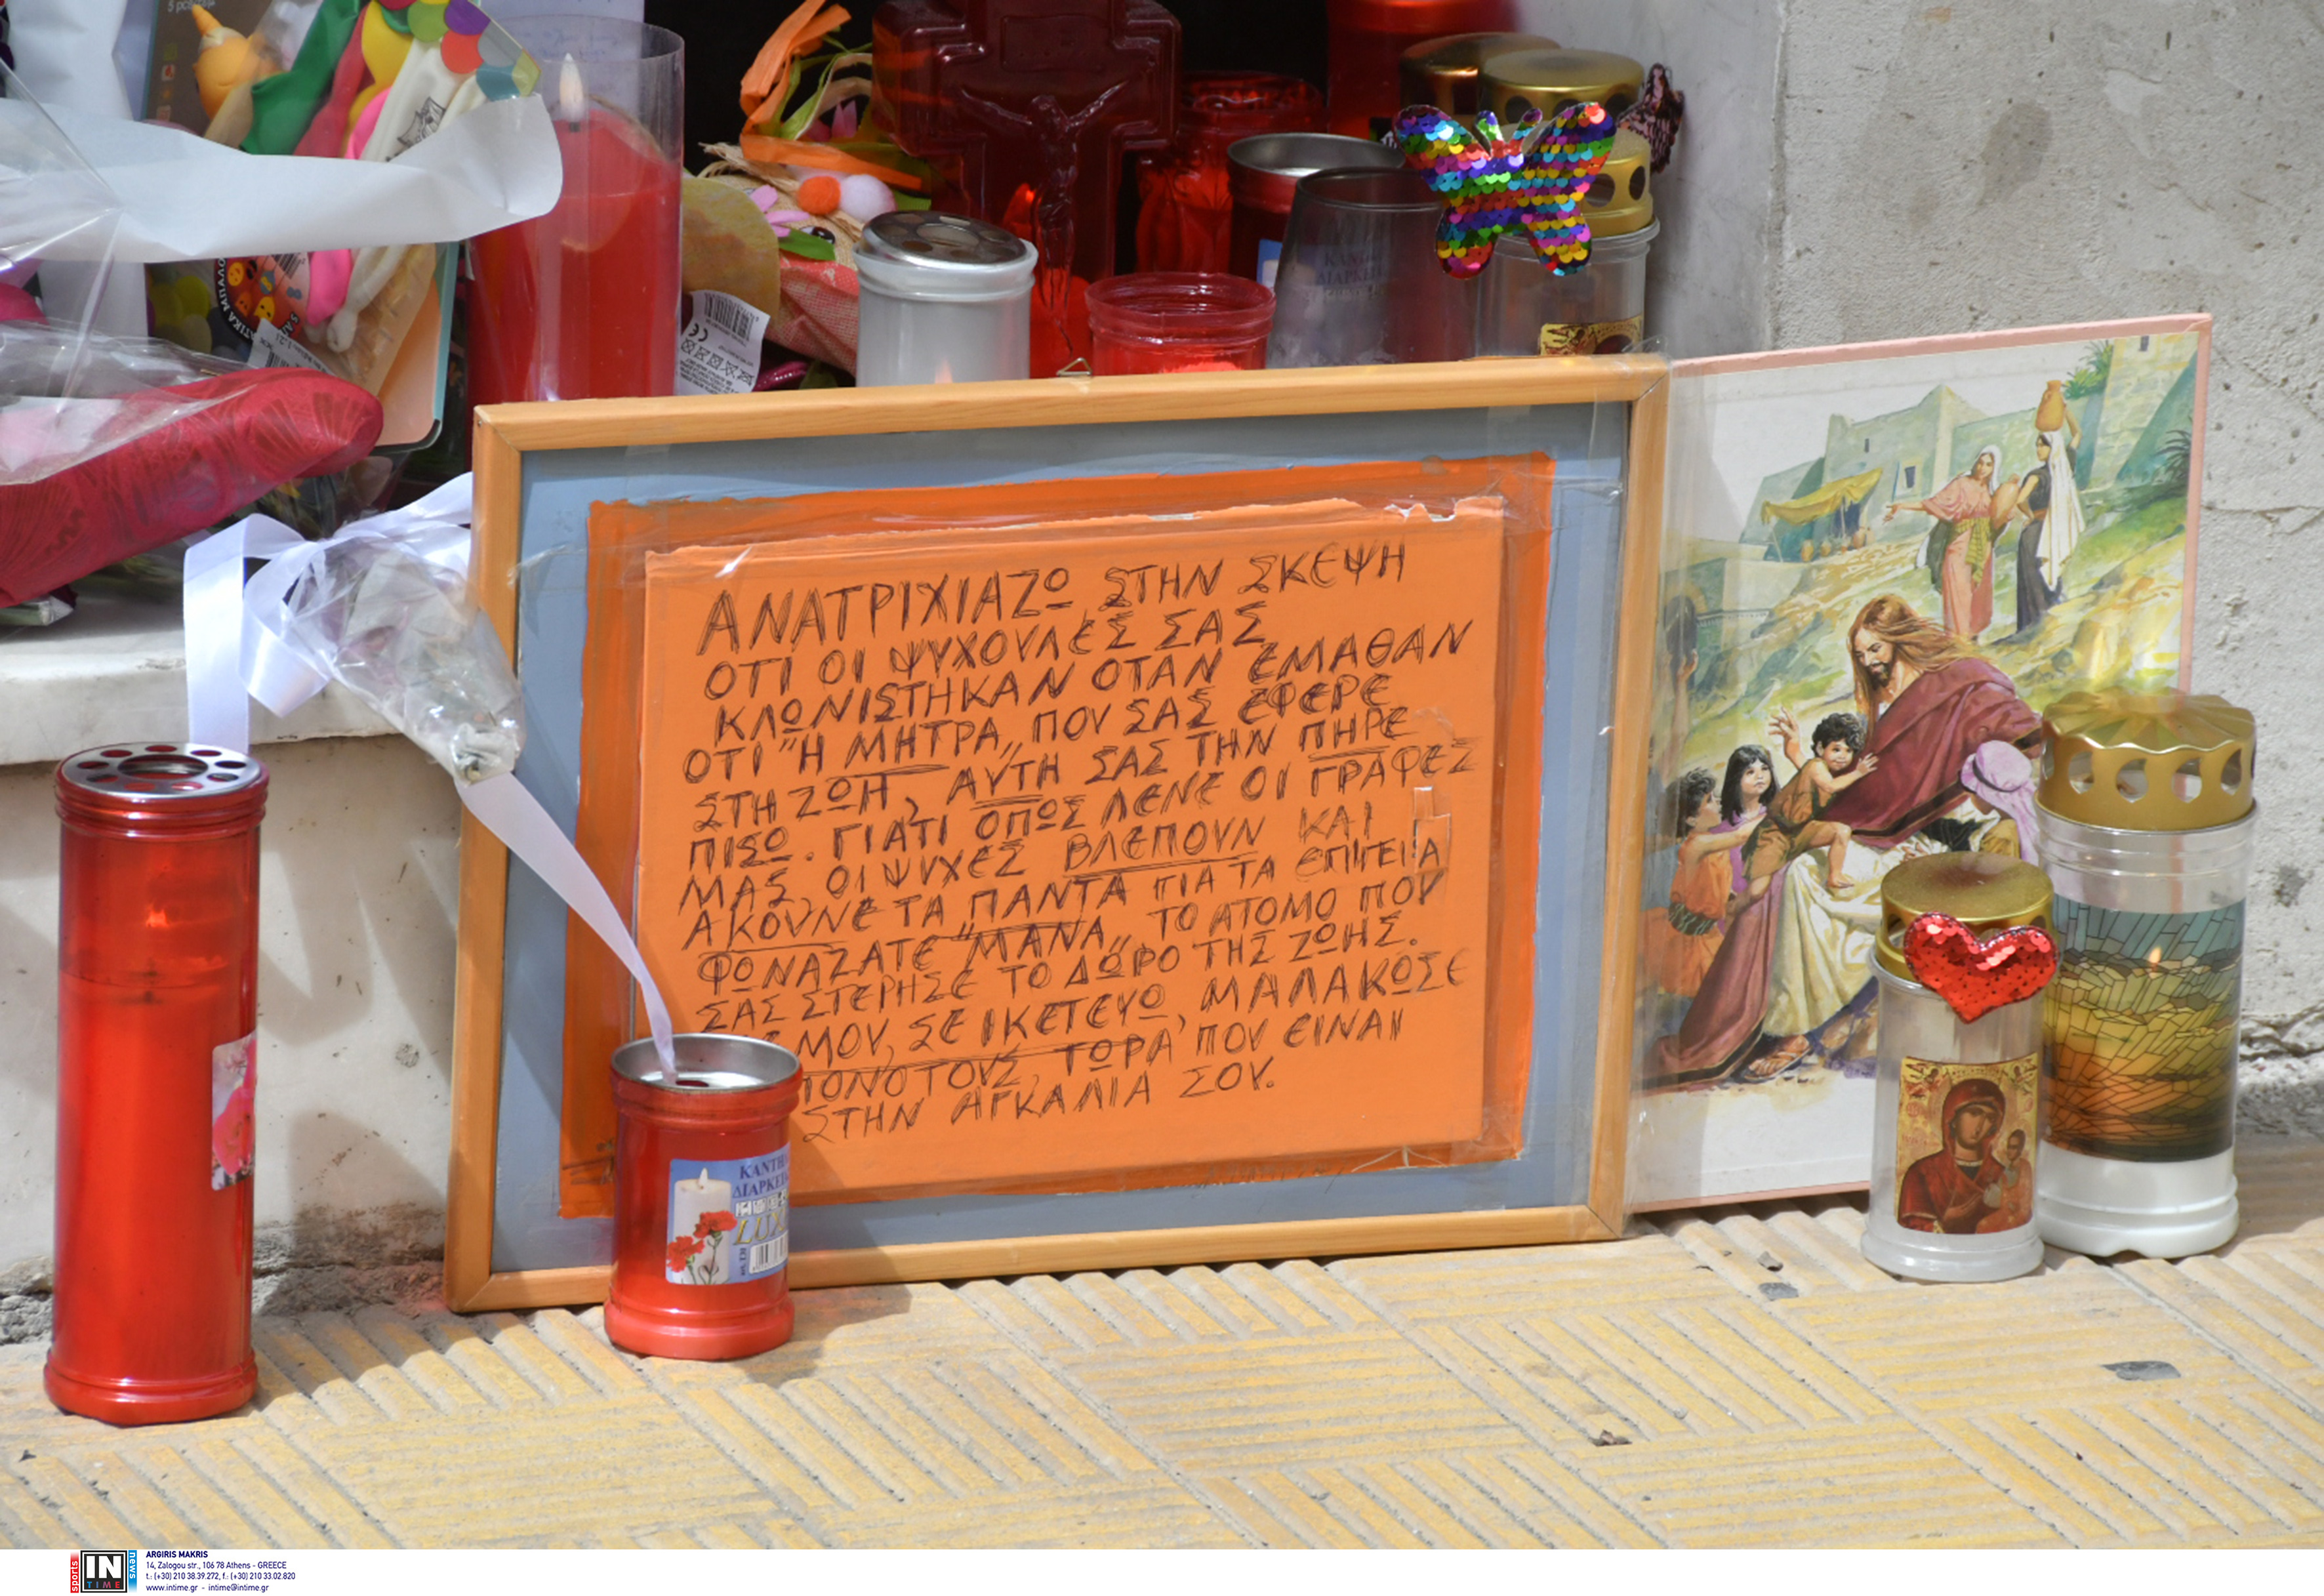 5 pcs
ΑΝΑΤΡΙΧΙΑΖΩ ΣΤΗΝ ΣΚΕΨΗ
ΟΤΙ ΟΙ ΨΥΧΟΥΛΕΣ ΣΑΣ
ΚΛΩΝΙΣΤΗΚΑΝ ΟΤΑΝ ΕΜΑΘΑΝ
ΟΤΙ "Η ΜΗΤΡΑ" ΠΟΥ ΣΑΣ ΕΦΕΡΕ
ΣΤΗ ΖΩΗ, ΑΥΤΗ ΣΑΣ ΤΗΝ ΠΗΡΕ
ΠΙΣΩ. ΓΙΑΤΙ ΟΠΩΣ ΛΕΝΕ ΟΙ ΓΡΑΦΕΣ
ΜΑΣ, ΟΙ ΨΥΧΕΣ ΒΛΕΠΟΥΝ ΚΑΙ
ΑΚΟΥΝΕ ΤΑ ΠΑΝΤΑ ΓΙΑ ΤΑ ΕΠΙΓΕΙΑ
ΦΩΝΑΖΑΤΕ "ΜΑΝΑ" ΤΟ ΑΤΟΜΟ ΠΟΥ
ΣΑΣ ΣΤΕΡΗΣΕ ΤΟ ΔΩΡΟ ΤΗΣ ΖΩΗΣ.
ΜΟΥ, ΣΕ ΙΚΕΤΕΥΩ, ΜΑΛΑΚΩΣΕ
ΠΟΝΟ ΤΟΥΣ, ΤΩΡΑ ΠΟΥ ΕΙΝΑΙ
ΣΤΗΝ ΑΓΚΑΛΙΑ ΣΟΥ.
ΚΑΝΤΗ
ΔΙΑΡΚΕΙ
LUX
sports
IN
TIME
news
ARGIRIS MAKRIS
14, Zalogou str., 106 78 Athens - GREECE
t.: (+30) 210 38.39.272, f.: (+30) 210 33.02.820
www.intime.gr - intime@intime.gr